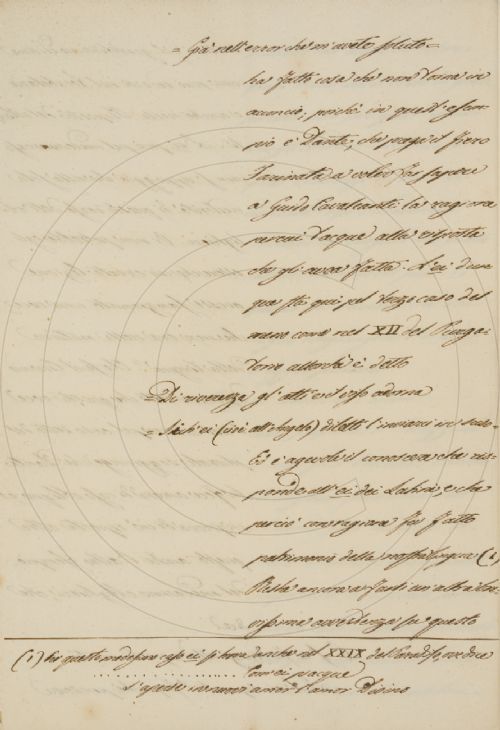 = Già nell'error che m'avete soluto =
ha fatti cosa che non torna in
acconcio; poichè in quest'esem-
pio è Dante, che prega il fiero
Farinata a voler far sapere
a Guido Cavalcanti la ragione
perchè tacque alla risposta
che gli aveva fatta. L'ei dun-
que sta qui pel terzo caso del
come nel XII del Purga-
torio allorchè è detto
= Di riverenza gl'atti e il viso adorna
= Sicch'ei (cioè all'Angelo) diletti l'inviarci in suso =
Ed è agevole il conoscere che ris-
ponde all'ei dei Latini, e che
perciò con ragione fu fatto
patrimonio della nostra lingua (1)
Resta ancora a farti un'altra bre-
vissima avvertenza su questo
(1) In questo medesimo caso ei si trova anche nel XXIX del Paradiso, ove dice
. . . . . . . . . . . . . . . . . . . com'ei piacque
S'aperse in nuovi amor l'amor Divino